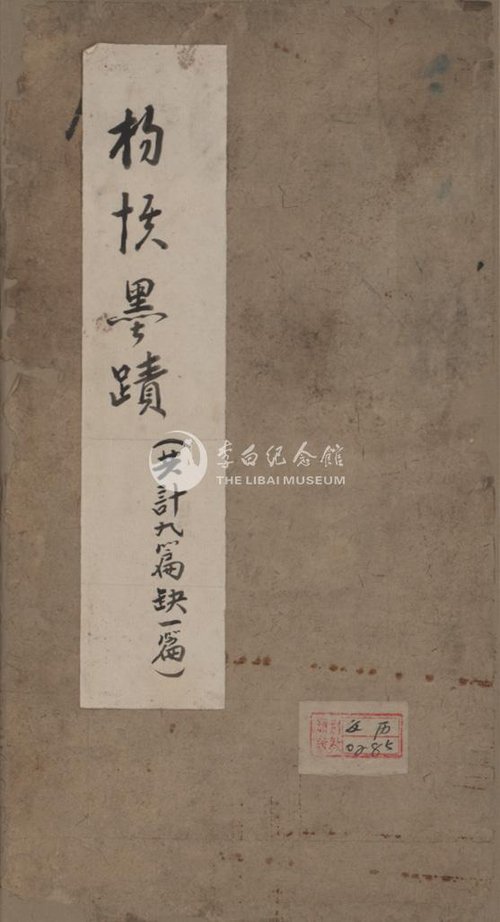 杨慎墨蹟
(共計九篇缺一篇)
李白纪念館
THE LIBAI MUSEUM
0285